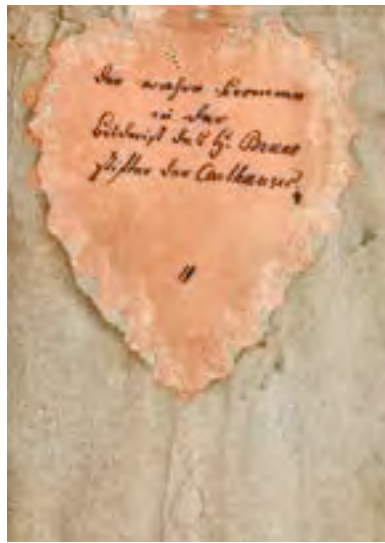 Der wahre Fromme
in der
Bildniß des H. Bruno
Stifter der Carthäuser